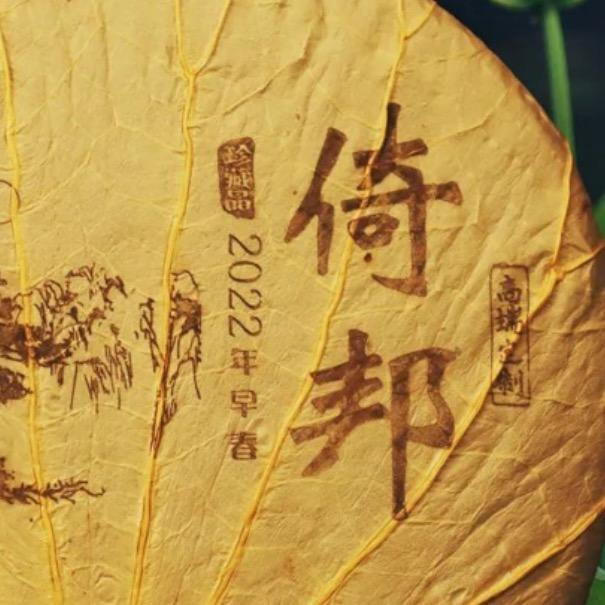 倚邦
珍藏品
2022年早春
高端定制